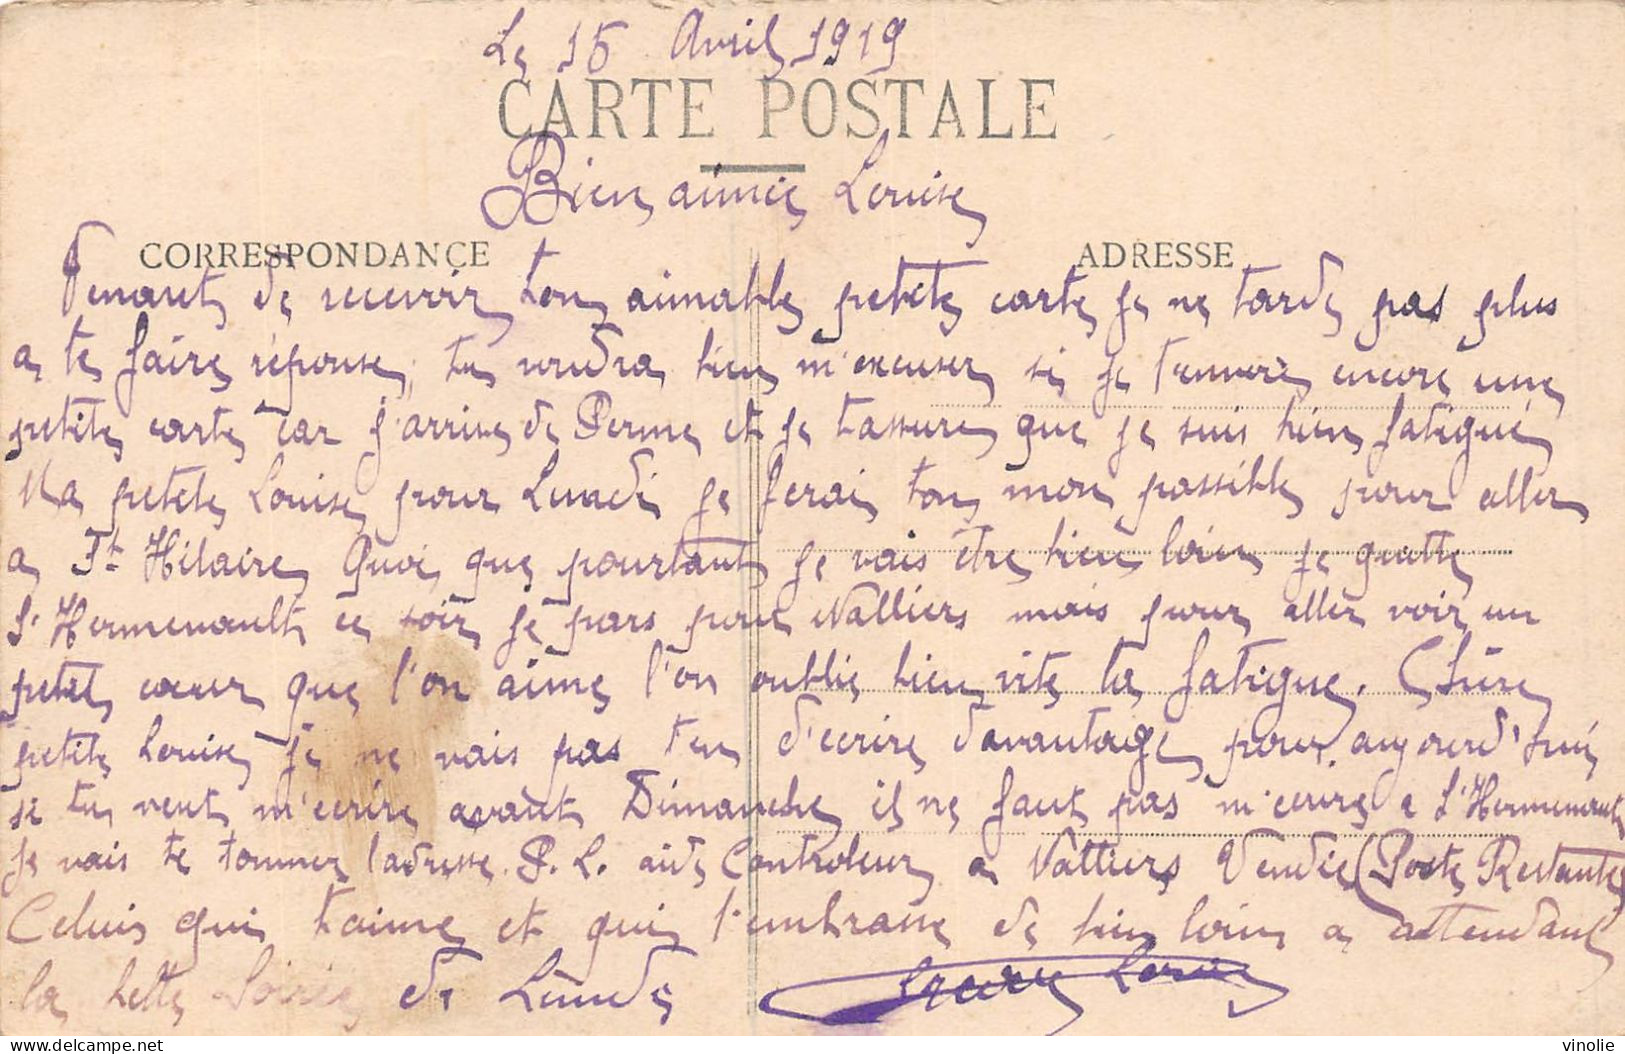 Le 15 Avril 1919
CARTE POSTALE
Bien aimée Louise
CORRESPONDANCE
ADRESSE
Venant de recevoir ton aimable petite carte je ne tarde pas plus
a te faire réponse, tu voudra bien m'excuser si je t'envoie encore une
petite carte car j'arrive de Perme et je t'assure que je suis bien fatigué
Ma petite Louise pour Lundi je ferai ton mon possible pour aller
a St Hilaire Quoi que pourtant je vais être bien loin je quitte
St Hermenault ce soir je pars pour Nalliers mais pour aller voir un
petit coeur que l'on aime l'on oublie bien vite la fatigue. Chère
petite Louise je ne vais pas t'en d'ecrire davantage pour aujourd'hui
si tu veut m'ecrire avant Dimanche il ne faut pas m'ecrire a St Hermenault
je vais te tonner l'adresse. P. L. aide Controleur a Nalliers Vendée (Poste Restante)
Celuis qui t'aime et qui t'embrasse de bien loin a attendant
la belle Soirée de Lundi
vinolie